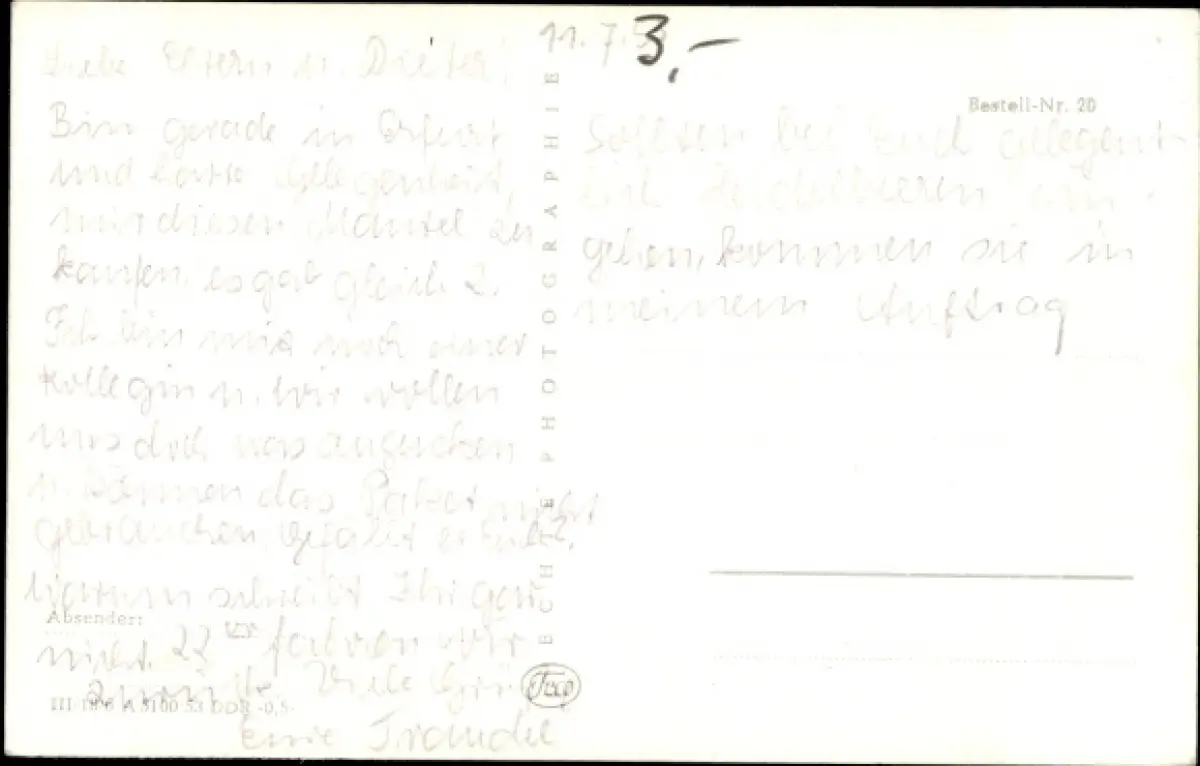 11.7.5
3,-
Liebe Eltern u. Dieter!
Bin gerade in Erfurt
und hatte Gelegenheit,
mir diesen Mantel zu
kaufen, es gab gleich 2.
Ich bin mit noch einer
Kollegin u. wir wollen
uns doch was angucken
u. können das Paket nicht
gebrauchen. Gefällt er Euch?
Warum schreibt Ihr gar
nicht. 22 Uhr fahren wir
zurück. Viele Grüße
Eure Traudel
Bestell-Nr. 20
Sollten bei Euch gelegent-
lich Heidelbeeren ein-
gehen, kommen sie in
meinem Auftrag
ECHTE PHOTOGRAPHIE
Absender:
III 18 6 A 5100 53 DDR -0,5-